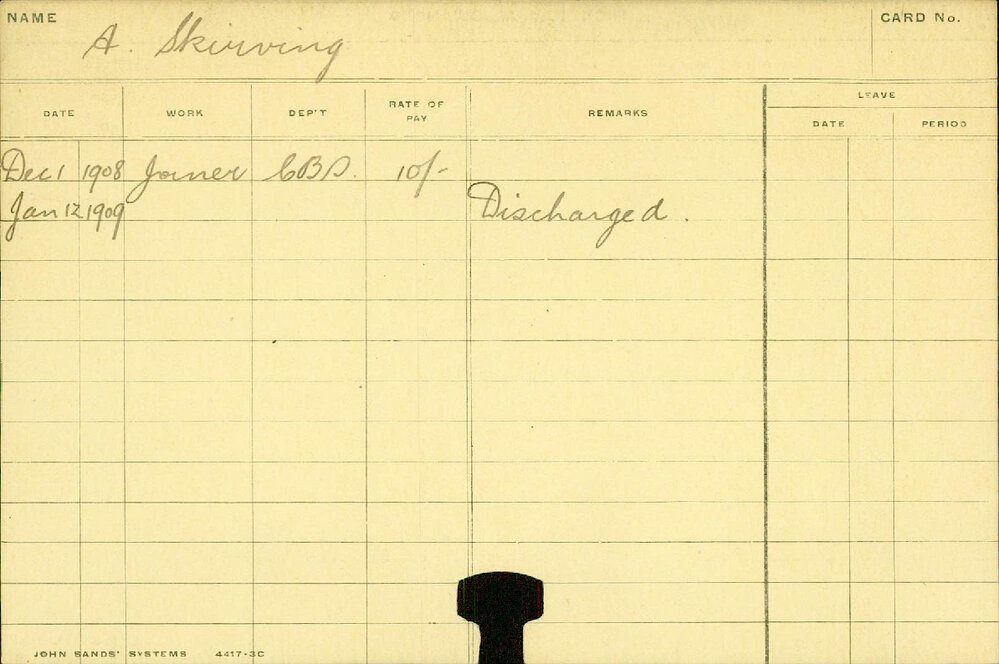 NAME A. Skirving CARD No.
LEAVE
DATE WORK DEP'T RATE OF PAY REMARKS DATE PERIOD
Dec 1 1908 Joiner CBD. 10/-
Jan 12 1909 Discharged.
JOHN SANDS' SYSTEMS 4417-3C